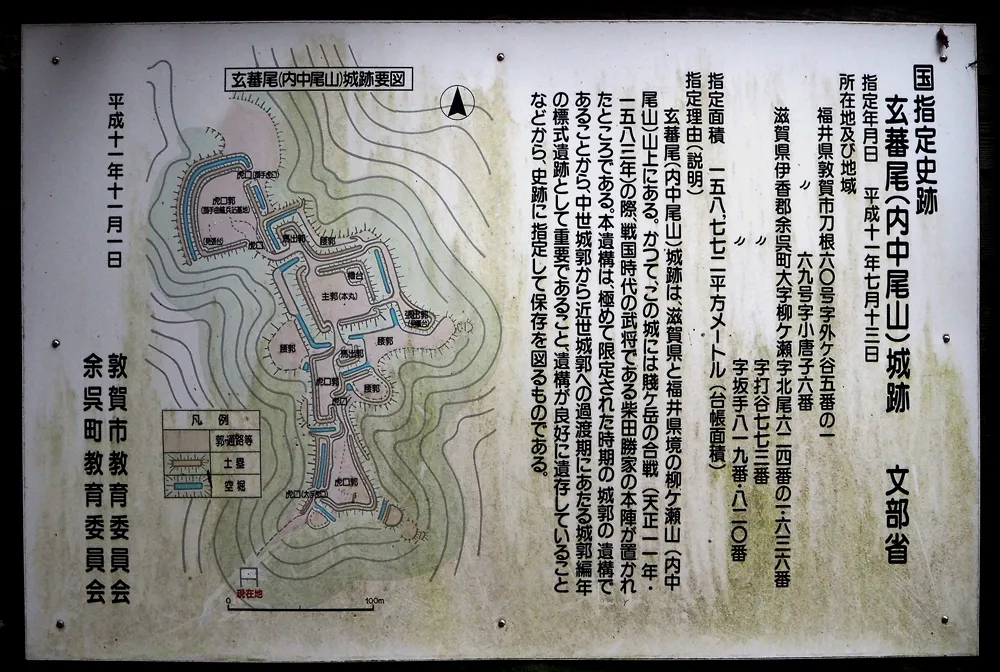 国指定史跡
玄蕃尾(内中尾山)城跡　文部省
指定年月日　平成十一年七月十三日
所在地及び地域
福井県敦賀市刀根六〇号字外ケ谷五番の一
〃　六九号字小唐子六番
滋賀県伊香郡余呉町大字柳ケ瀬字北尾六二四番の一・六三六番
〃　字打谷七七三番
〃　字坂手八一九番・八二〇番
指定面積　一五八,七七二平方メートル(台帳面積)
指定理由(説明)
玄蕃尾(内中尾山)城跡は、滋賀県と福井県境の柳ケ瀬山(内中
尾山)山上にある。かつて、この城には賤ヶ岳の合戦(天正一一年・
一五八三年)の際、戦国時代の武将である柴田勝家の本陣が置かれ
たところである。本遺構は、極めて限定された時期の城郭の遺構で
あることから、中世城郭から近世城郭への過渡期にあたる城郭編年
の標式遺跡として重要であること、遺構が良好に遺存していること
などから、史跡に指定して保存を図るものである。
玄蕃尾(内中尾山)城跡要図
虎口(搦手虎口)
虎口郭
(搦手曲輪兵站基地)
虎口
馬出郭
腰郭
櫓台
主郭(本丸)
張出郭
腰郭
腰郭
馬出郭
虎口郭
腰郭
虎口
虎口郭
虎口(大手虎口)
凡例
郭・通路等
土塁
空堀
現在地
0
100m
平成十一年十一月一日
敦賀市教育委員会
余呉町教育委員会